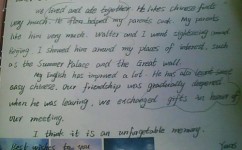 we lived and ate together. He likes Chinese foods
very much. He often helped my parents cook. My parents
like him very much. Walter and I went sightseeing around
Beijing. I showed him around my places of interest, such
as the Summer Palace and the Great Wall.
My English has improved a lot. He has also learnt some
easy Chinese. Our friendship was gradually deepened
when he was leaving, we exchanged gifts in honor of
our meeting.
I think it is an unforgetable memory.
Best wishes to you
Yours